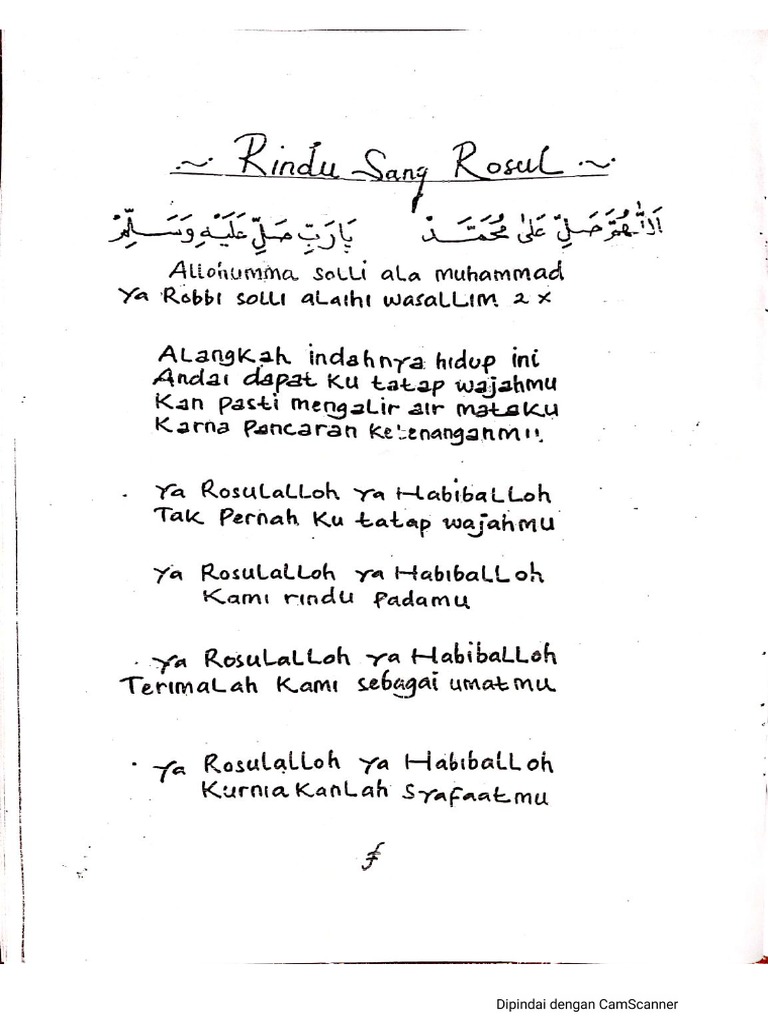 ~ Rindu Sang Rosul ~
اَللّٰهُمَّ صَلِّ عَلىٰ مُحَمَّدْ يَارَبِّ صَلِّ عَلَيْهِ وَسَلِّمْ
Allohumma solli ala muhammad
Ya Robbi solli alaihi wasallim 2 x
Alangkah indahnya hidup ini
Andai dapat ku tatap wajahmu
Kan pasti mengalir air mataku
Karna pancaran ketenanganmu
Ya Rosulalloh ya Habiballoh
Tak pernah ku tatap wajahmu
Ya Rosulalloh ya Habiballoh
Kami rindu padamu
Ya Rosulalloh ya Habiballoh
Terimalah kami sebagai umatmu
Ya Rosulalloh ya Habiballoh
Kurniakanlah syafaatmu
Dipindai dengan CamScanner